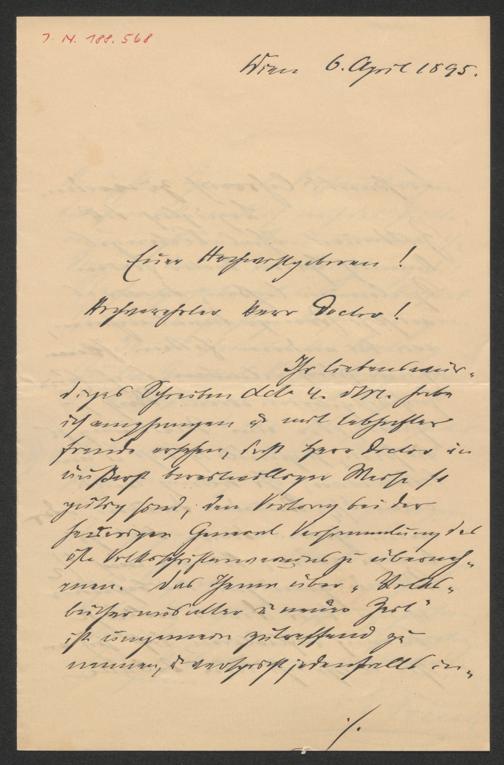 J. N. 188.568
Wien 6. April 1895.
Euer Hochwohlgeboren!
Hochverehrter Herr Doctor!
Ihr liebenswür-
diges Schreiben ddo 4. d M. habe
ich empfangen u mit lebhafter
Freude ersehen, daß Herr Doctor in
äußerst bereitwilliger Weise so
gütig sind, den Vortrag bei der
heurigen General Versammlung des
öst. Volksschriftenvereines zu überneh-
men. Das Thema über „Volks-
bücher aus alter u neuer Zeit"
ist ungemein zutreffend zu
nennen, u verspricht jedenfalls in-
./.